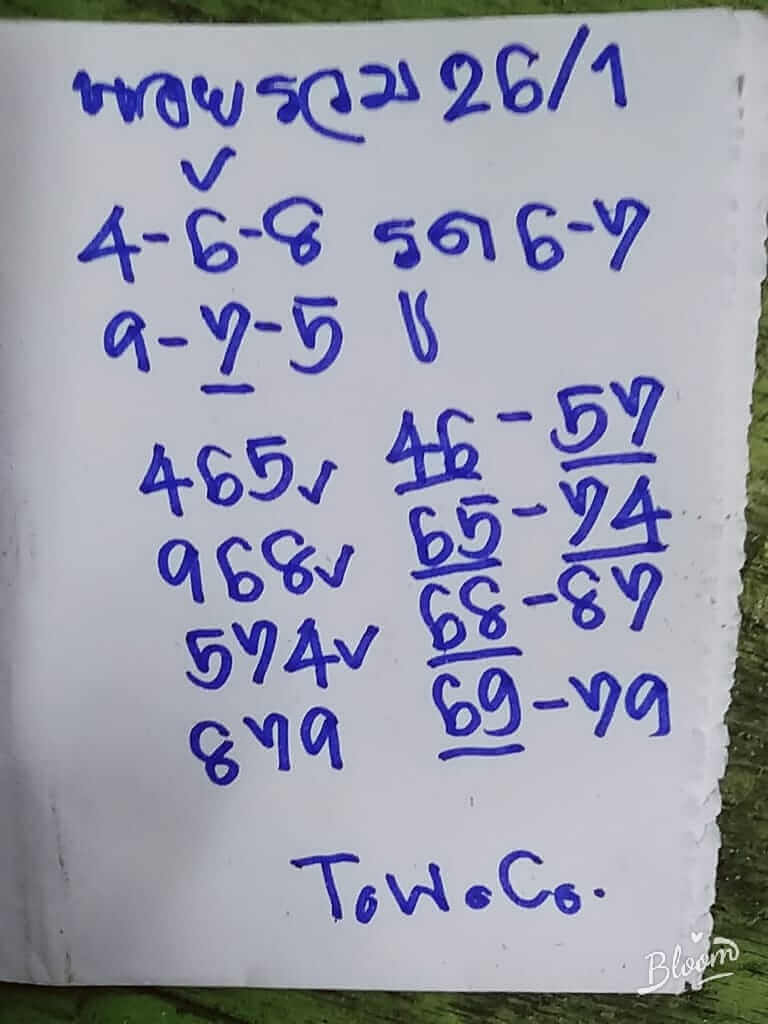 หอยรวม 26/1
✓
4-6-8 รูด 6-7
9-7-5 ||
465✓ 46-57
968✓ 65-74
574✓ 68-87
879 69-79
T.W.C.
Bloom